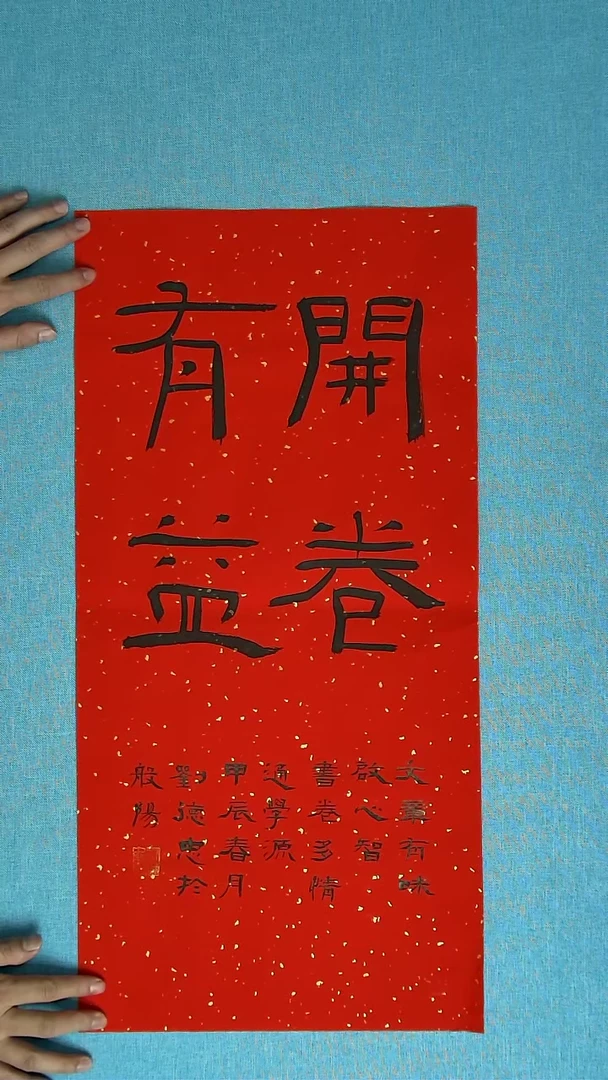 開卷
有益
文章有味
啟心智
書卷多情
通學源
甲辰春月
劉德忠於
般陽